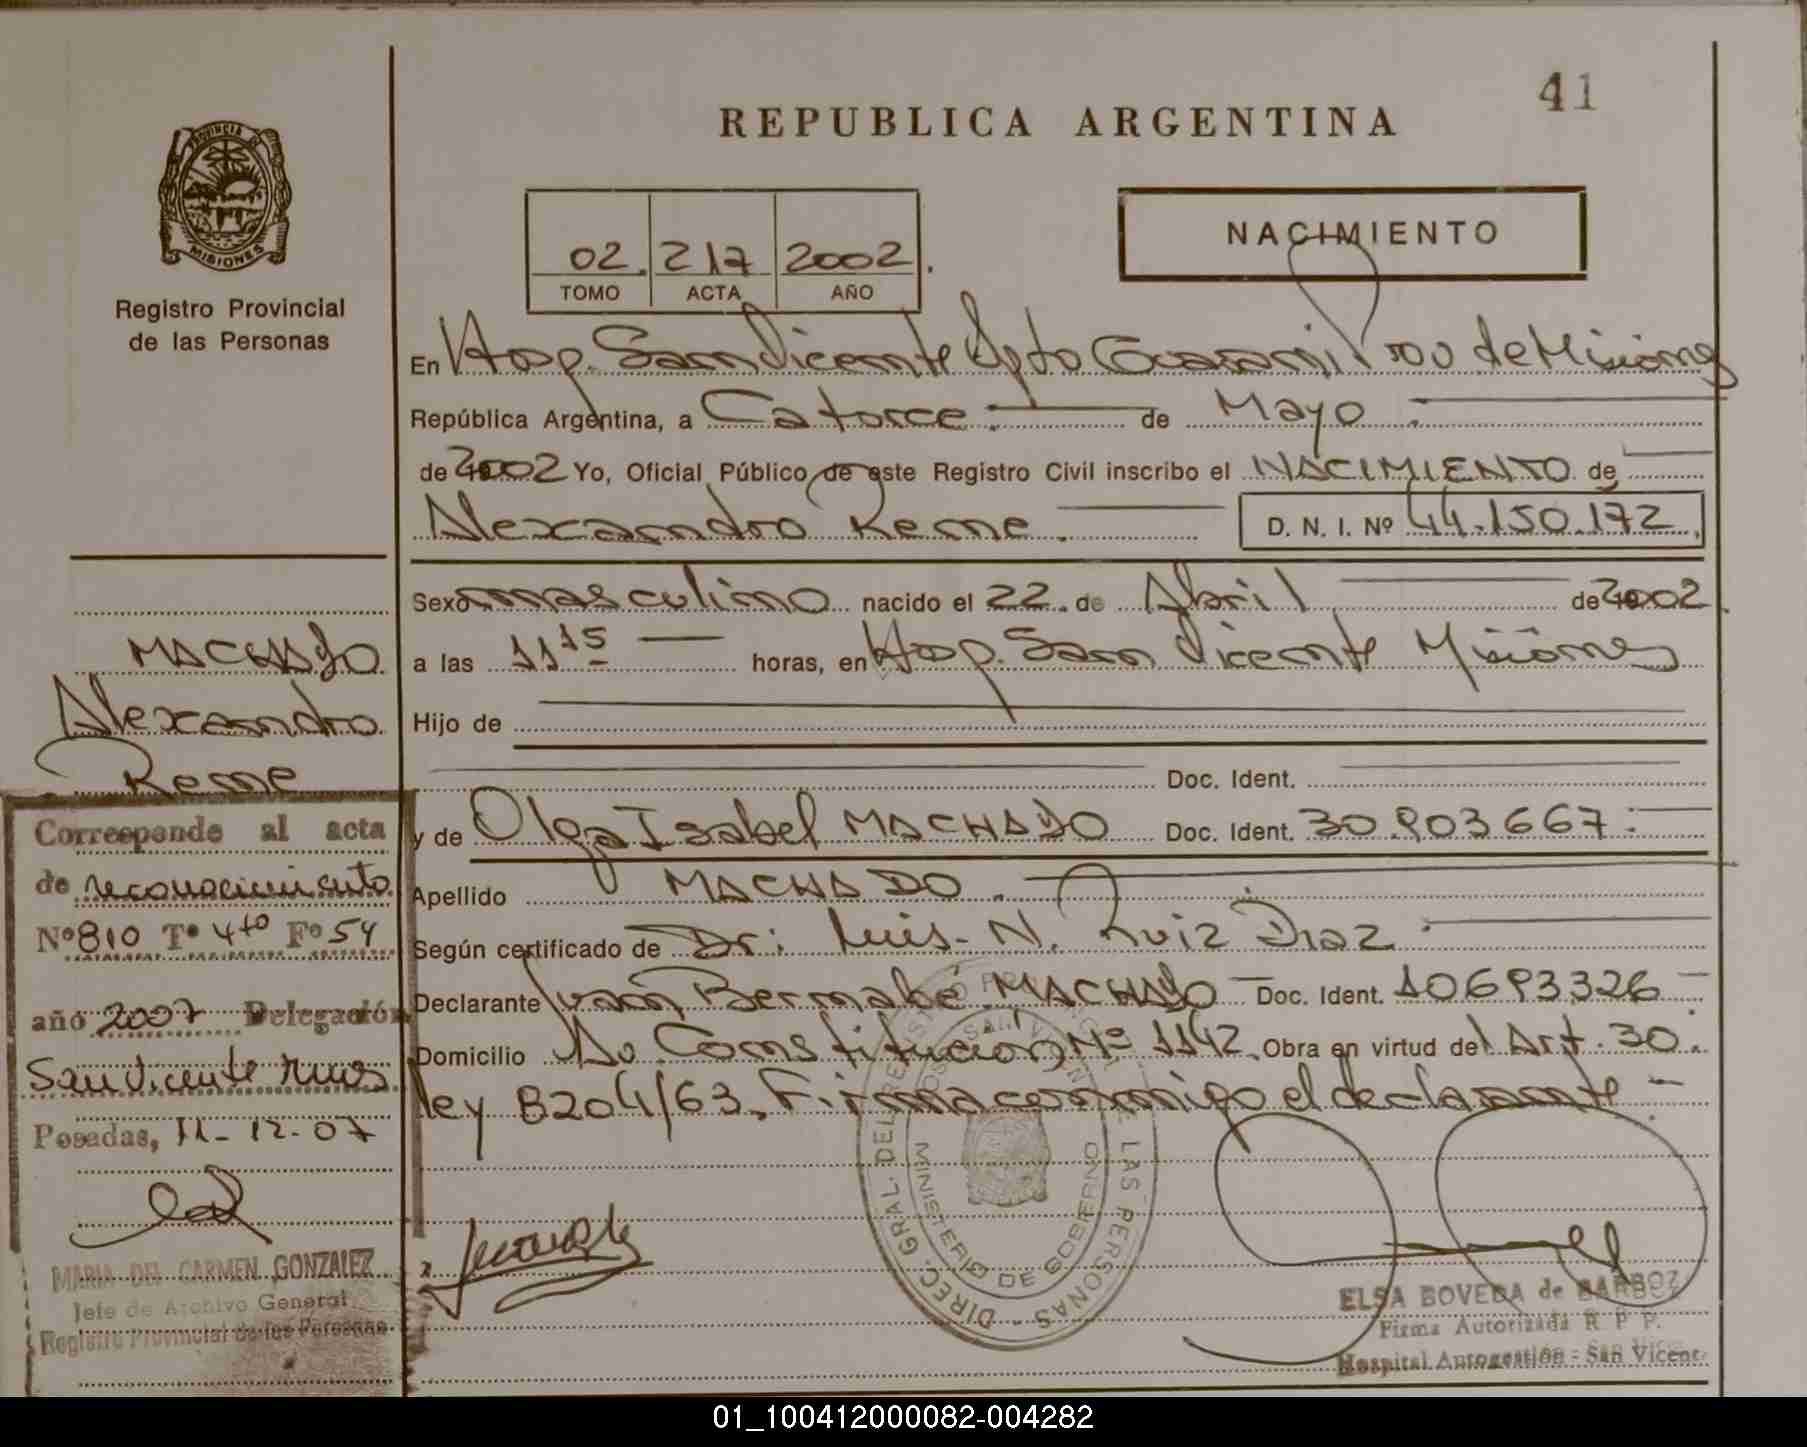 41
REPUBLICA ARGENTINA
PROVINCIA DE
MISIONES
Registro Provincial
de las Personas
02. 217 2002.
TOMO ACTA AÑO
NACIMIENTO
En Hosp. San Vicente Dpto Guarani Prov de Misiones
República Argentina, a Catorce.— de Mayo.—
de 2002 Yo, Oficial Público de este Registro Civil inscribo el NACIMIENTO de
Alexandro Rene.— D. N. I. Nº 44.150.172
Sexo masculino nacido el 22 de Abril — de 2002
a las 11 15 — horas, en Hosp. San Vicente Misiones
Hijo de
Doc. Ident.
y de Olga Isabel MACHADO Doc. Ident. 30.903667.—
Apellido MACHADO.—
Según certificado de Dr: Luis N. Ruiz Diaz.—
Declarante Juan Bernabé MACHADO — Doc. Ident. 10693326 —
Domicilio Av Constitucion Nº 1142. Obra en virtud del Art. 30.
ley 8204/63. Firma conmigo el declarante.—
MACHADO
Alexandro
Rene
Corresponde al acta
de reconocimiento
Nº 810 Tº 4to Fº 54
año 2007 Delegación
San Vicente Mnes
Posadas, 11-12-07
MARIA DEL CARMEN GONZALEZ
Jefe de Archivo General
Registro Provincial de las Personas
DIREC. GRAL. DEL REGISTRO LAS PERSONAS
MINISTERIO DE GOBIERNO
ELSA BOVEDA de
Firma Autorizada R P P.
Hospital Autogestión - San Vicente
01_100412000082-004282